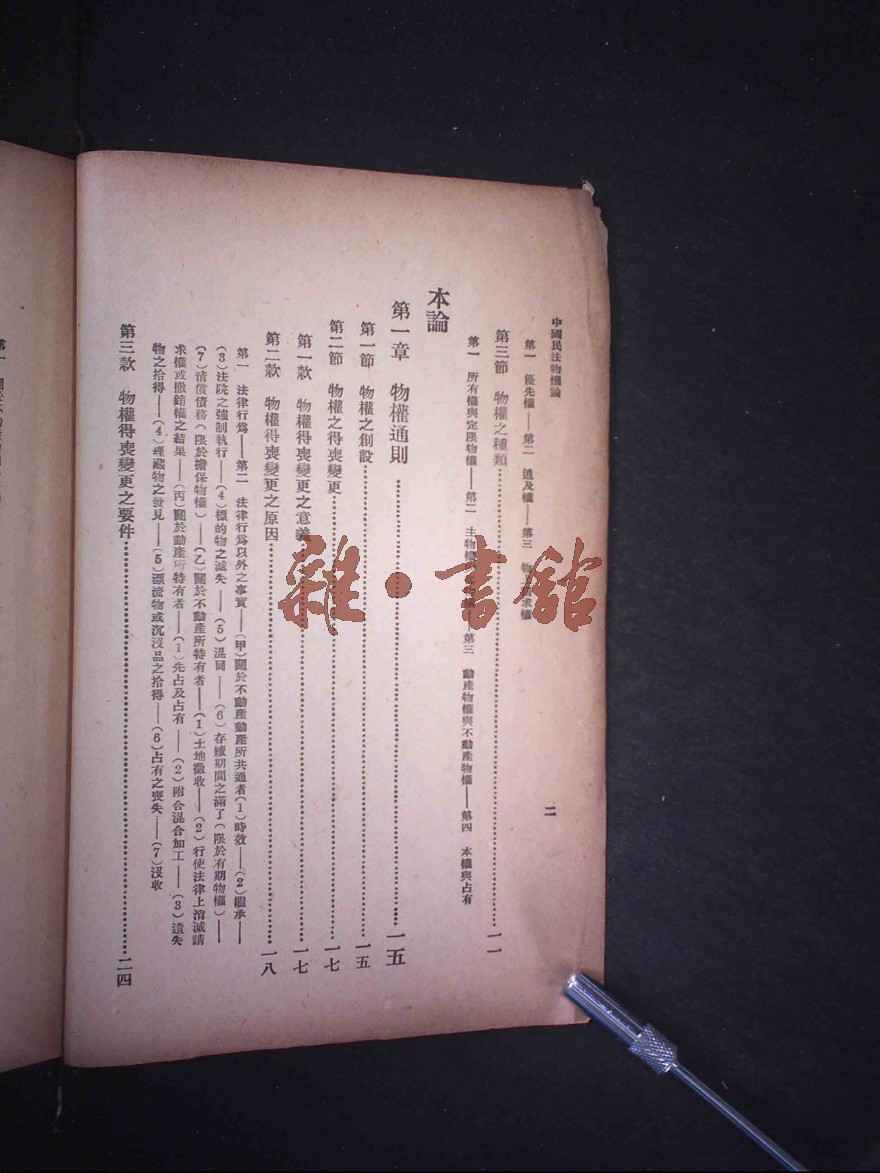 中國民法物權論
二
第一　優先權——第二　追及權——第三　物 求權
第三節　物權之種類……一一
第一　所有權與定限物權——第二　主物權 第三　動產物權與不動產物權——第四　本權與占有
本論
第一章　物權通則……一五
第一節　物權之創設……一五
第二節　物權之得喪變更……一七
第一款　物權得喪變更之意義……一七
第二款　物權得喪變更之原因……一八
第一　法律行爲——第二　法律行爲以外之事實——（甲）關於不動產動產所共通者（1）時效——（2）繼承——
（3）法院之強制執行——（4）標的物之滅失——（5）混同——（6）存續期間之滿了（限於有期物權）——
（7）清償債務（限於擔保物權）——（乙）關於不動產所特有者——（1）土地徵收——（2）行使法律上消滅請
求權或撤銷權之結果——（丙）關於動產所特有者——（1）先占及占有——（2）附合混合加工——（3）遺失
物之拾得——（4）埋藏物之發見——（5）漂流物或沉沒品之拾得——（6）占有之喪失——（7）沒收
第三款　物權得喪變更之要件……二四
雜·書館